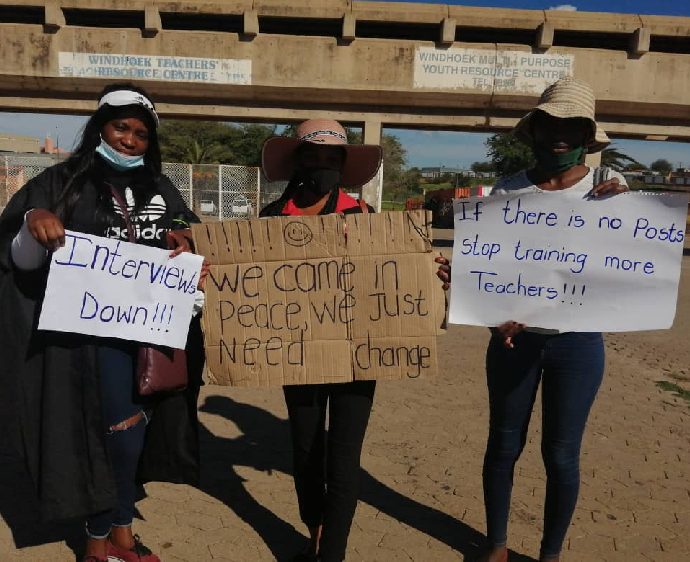 WINDHOEK TEACHERS'
RESOURCE CENTRE
WINDHOEK MULTI PURPOSE
YOUTH RESOURCE CENTRE
TEL
adidas
Interviews
Down!!!
!!!!!
We come in
peace, we Just
Need change
If there is no Posts
stop training more
Teachers!!!